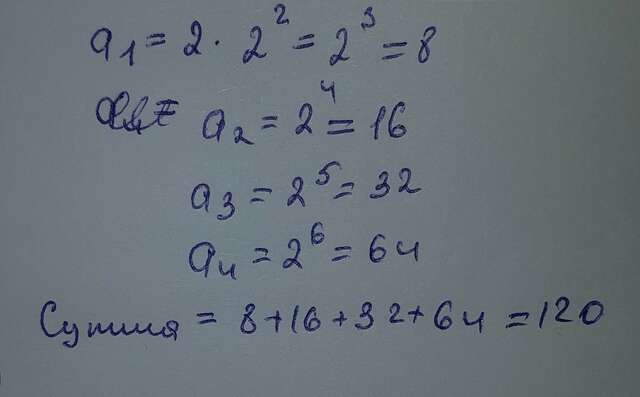 a₁ = 2 · 2² = 2³ = 8
a₂ = 2⁴ = 16
a₃ = 2⁵ = 32
a₄ = 2⁶ = 64
Сумма = 8 + 16 + 32 + 64 = 120